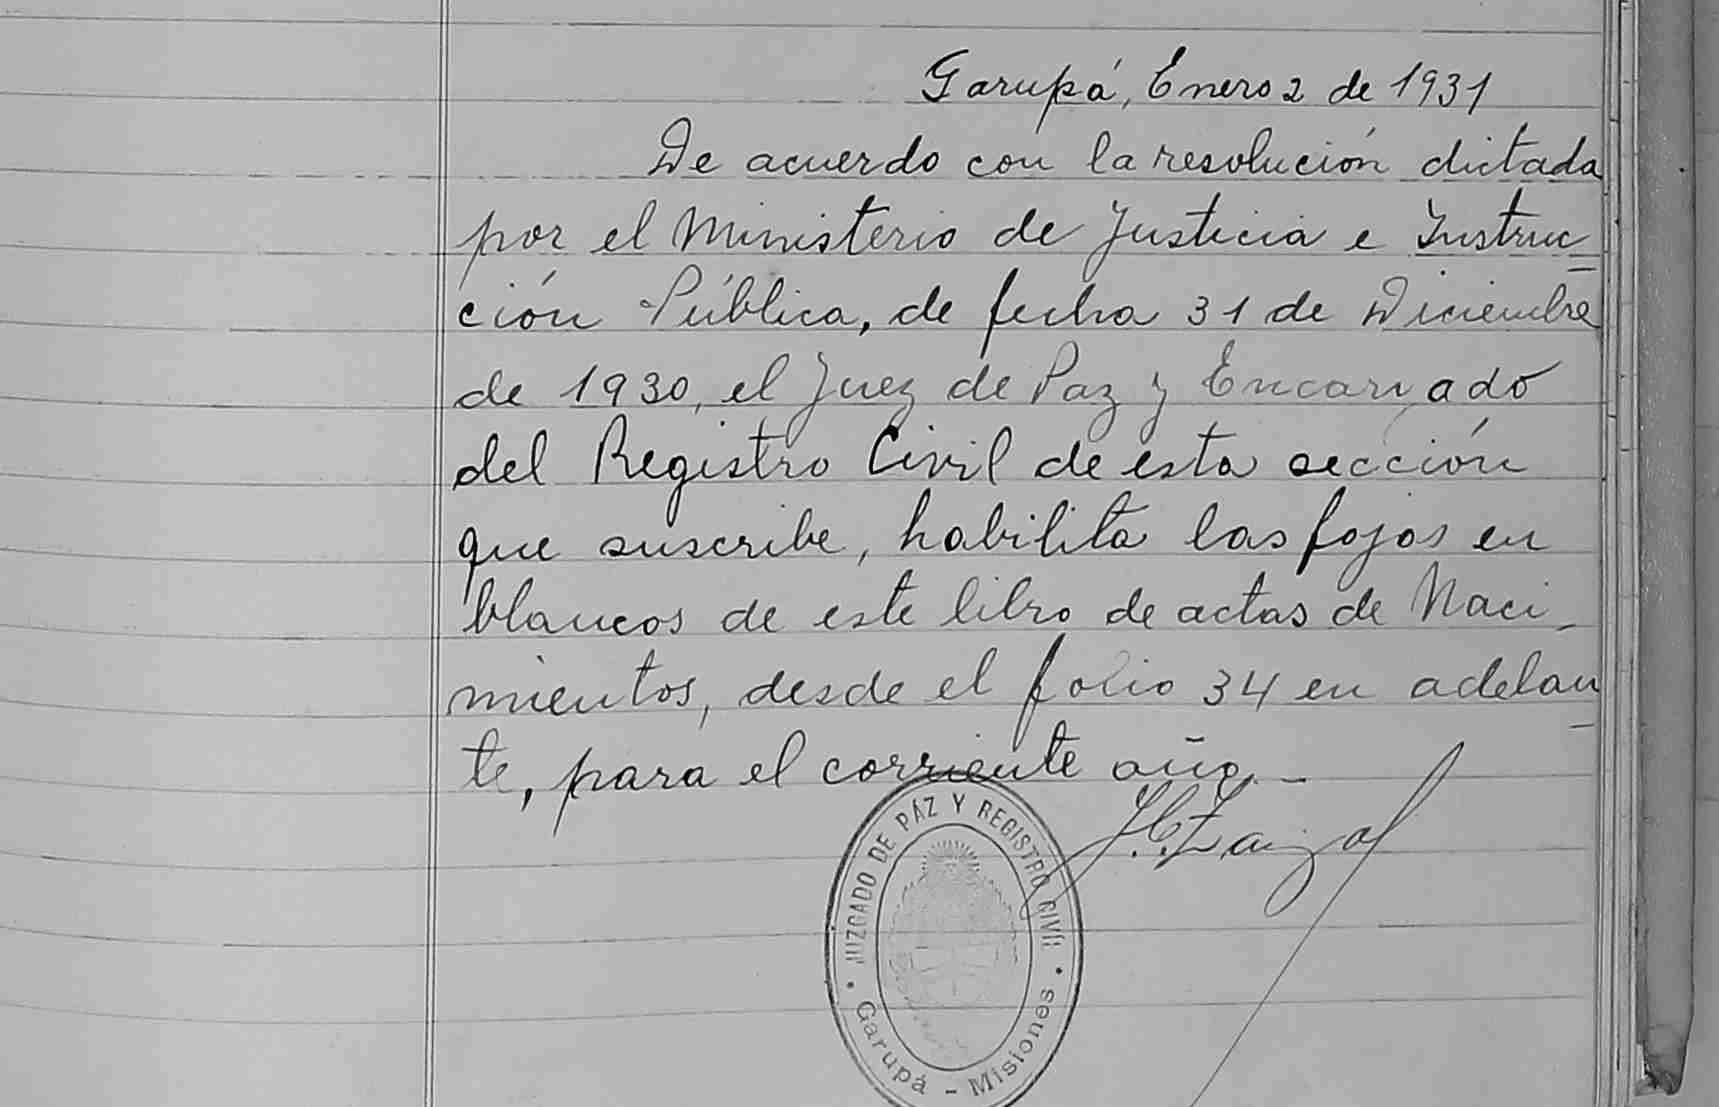 Garupá, Enero 2 de 1931
De acuerdo con la resolución dictada
por el Ministerio de Justicia e Instruc
ción Pública, de fecha 31 de Diciembre
de 1930, el Juez de Paz y Encargado
del Registro Civil de esta sección
que suscribe, habilita las fojas en
blancos de este libro de actas de Naci-
mientos, desde el folio 34 en adelan
te, para el corriente año.-
JUZGADO DE PÁZ Y REGISTRO CIVIL
Garupá - Misiones